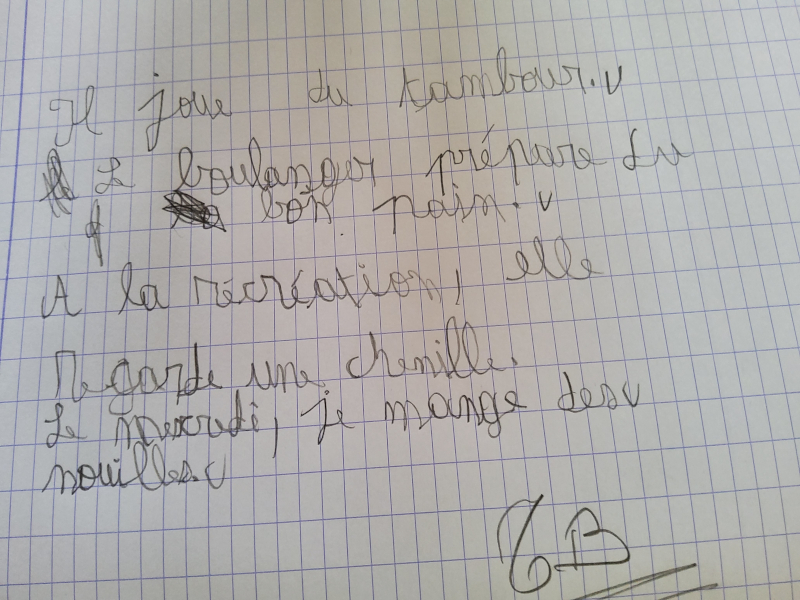 Il joue du tambour. v
Le boulanger prépare du
bon pain. v
A la récréation, elle
regarde une chenille.
Le mercredi, je mange des v
nouilles. v
TB